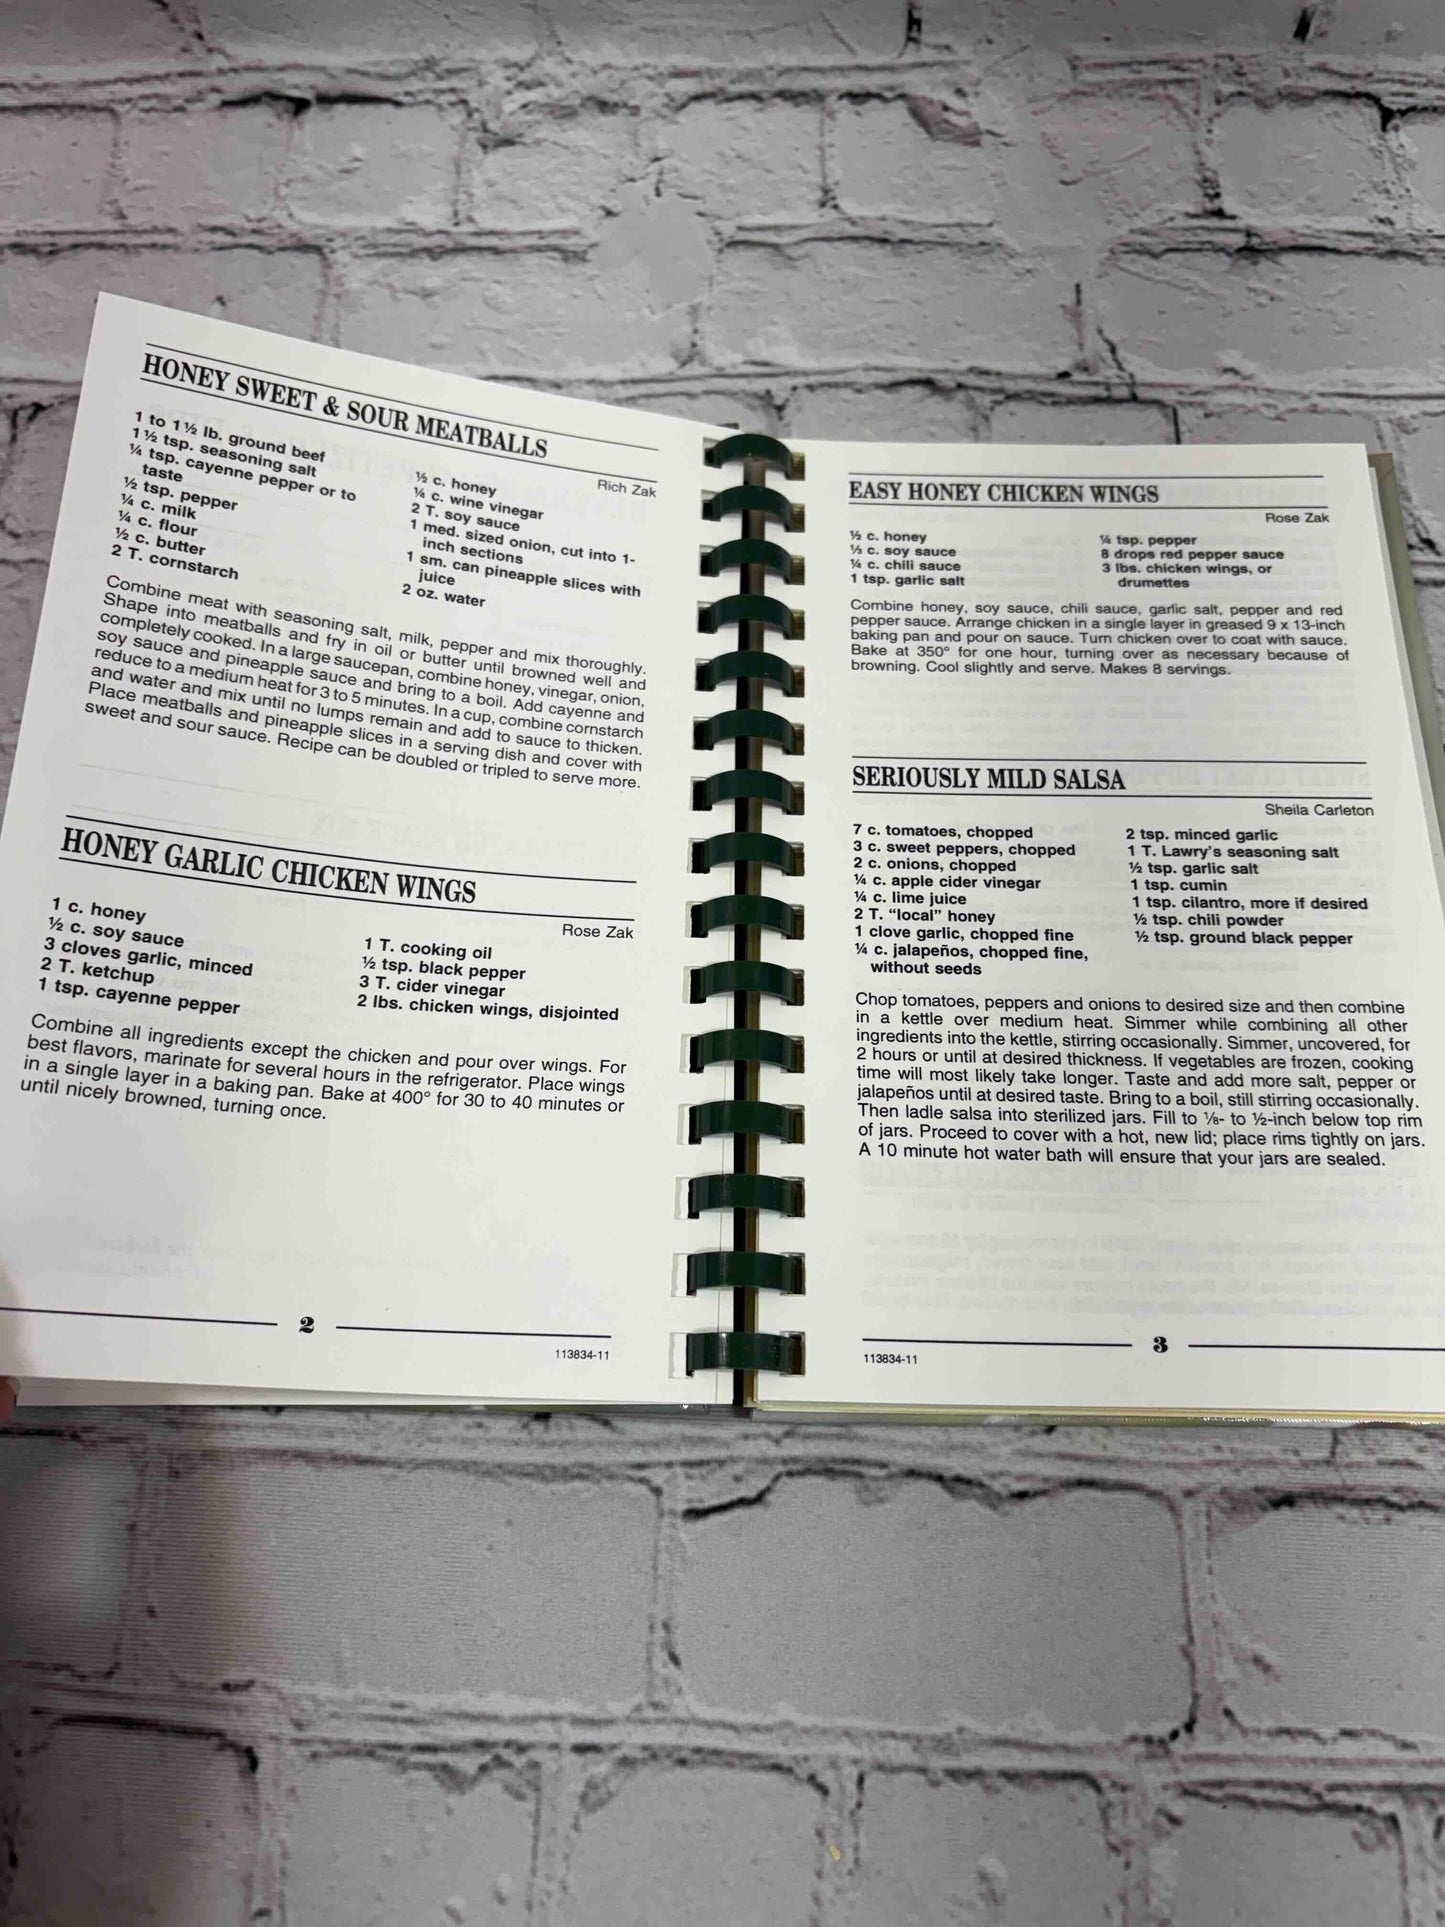 HONEY SWEET & SOUR MEATBALLS
Rich Zak
1 to 1½ lb. ground beef
1½ tsp. seasoning salt
¼ tsp. cayenne pepper or to
taste
½ tsp. pepper
¼ c. milk
¼ c. flour
½ c. butter
2 T. cornstarch
½ c. honey
¼ c. wine vinegar
2 T. soy sauce
1 med. sized onion, cut into 1-
inch sections
1 sm. can pineapple slices with
juice
2 oz. water
Combine meat with seasoning salt, milk, pepper and mix thoroughly.
Shape into meatballs and fry in oil or butter until browned well and
completely cooked. In a large saucepan, combine honey, vinegar, onion,
soy sauce and pineapple sauce and bring to a boil. Add cayenne and
reduce to a medium heat for 3 to 5 minutes. In a cup, combine cornstarch
and water and mix until no lumps remain and add to sauce to thicken.
Place meatballs and pineapple slices in a serving dish and cover with
sweet and sour sauce. Recipe can be doubled or tripled to serve more.
HONEY GARLIC CHICKEN WINGS
Rose Zak
1 c. honey
½ c. soy sauce
3 cloves garlic, minced
2 T. ketchup
1 tsp. cayenne pepper
1 T. cooking oil
½ tsp. black pepper
3 T. cider vinegar
2 lbs. chicken wings, disjointed
Combine all ingredients except the chicken and pour over wings. For
best flavors, marinate for several hours in the refrigerator. Place wings
in a single layer in a baking pan. Bake at 400° for 30 to 40 minutes or
until nicely browned, turning once.
2
113834-11
EASY HONEY CHICKEN WINGS
Rose Zak
½ c. honey
⅓ c. soy sauce
¼ c. chili sauce
1 tsp. garlic salt
¼ tsp. pepper
8 drops red pepper sauce
3 lbs. chicken wings, or
drumettes
Combine honey, soy sauce, chili sauce, garlic salt, pepper and red
pepper sauce. Arrange chicken in a single layer in greased 9 x 13-inch
baking pan and pour on sauce. Turn chicken over to coat with sauce.
Bake at 350° for one hour, turning over as necessary because of
browning. Cool slightly and serve. Makes 8 servings.
SERIOUSLY MILD SALSA
Sheila Carleton
7 c. tomatoes, chopped
3 c. sweet peppers, chopped
2 c. onions, chopped
¼ c. apple cider vinegar
¼ c. lime juice
2 T. “local” honey
1 clove garlic, chopped fine
¼ c. jalapeños, chopped fine,
without seeds
2 tsp. minced garlic
1 T. Lawry's seasoning salt
½ tsp. garlic salt
1 tsp. cumin
1 tsp. cilantro, more if desired
½ tsp. chili powder
½ tsp. ground black pepper
Chop tomatoes, peppers and onions to desired size and then combine
in a kettle over medium heat. Simmer while combining all other
ingredients into the kettle, stirring occasionally. Simmer, uncovered, for
2 hours or until at desired thickness. If vegetables are frozen, cooking
time will most likely take longer. Taste and add more salt, pepper or
jalapeños until at desired taste. Bring to a boil, still stirring occasionally.
Then ladle salsa into sterilized jars. Fill to ⅛- to ½-inch below top rim
of jars. Proceed to cover with a hot, new lid; place rims tightly on jars.
A 10 minute hot water bath will ensure that your jars are sealed.
3
113834-11